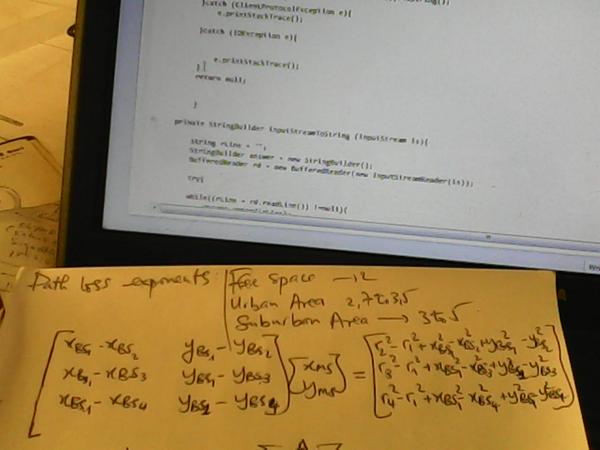 }catch (ClientProtocolException e){
e.printStackTrace();
}catch (IOException e){
e.printStackTrace();
}
return null;
}
private StringBuilder inputStreamToString (InputStream is){
String rLine = "";
StringBuilder answer = new StringBuilder();
BufferedReader rd = new BufferedReader(new InputStreamReader(is));
try{
while((rLine = rd.readLine()) !=null){
Path loss exponents: Free space → 2
Urban Area 2,7 to 3,5
Suburban Area → 3 to 5
[x_BS1 - x_BS2 y_BS1 - y_BS2] [x_ms] = [r_2^2 - r_1^2 + x_BS1^2 - x_BS2^2 + y_BS1^2 - y_BS2^2]
x_BS1 - x_BS3 y_BS1 - y_BS3 y_ms r_3^2 - r_1^2 + x_BS1^2 - x_BS3^2 + y_BS1^2 - y_BS3^2
x_BS1 - x_BS4 y_BS1 - y_BS4 r_4^2 - r_1^2 + x_BS1^2 - x_BS4^2 + y_BS1^2 - y_BS4^2